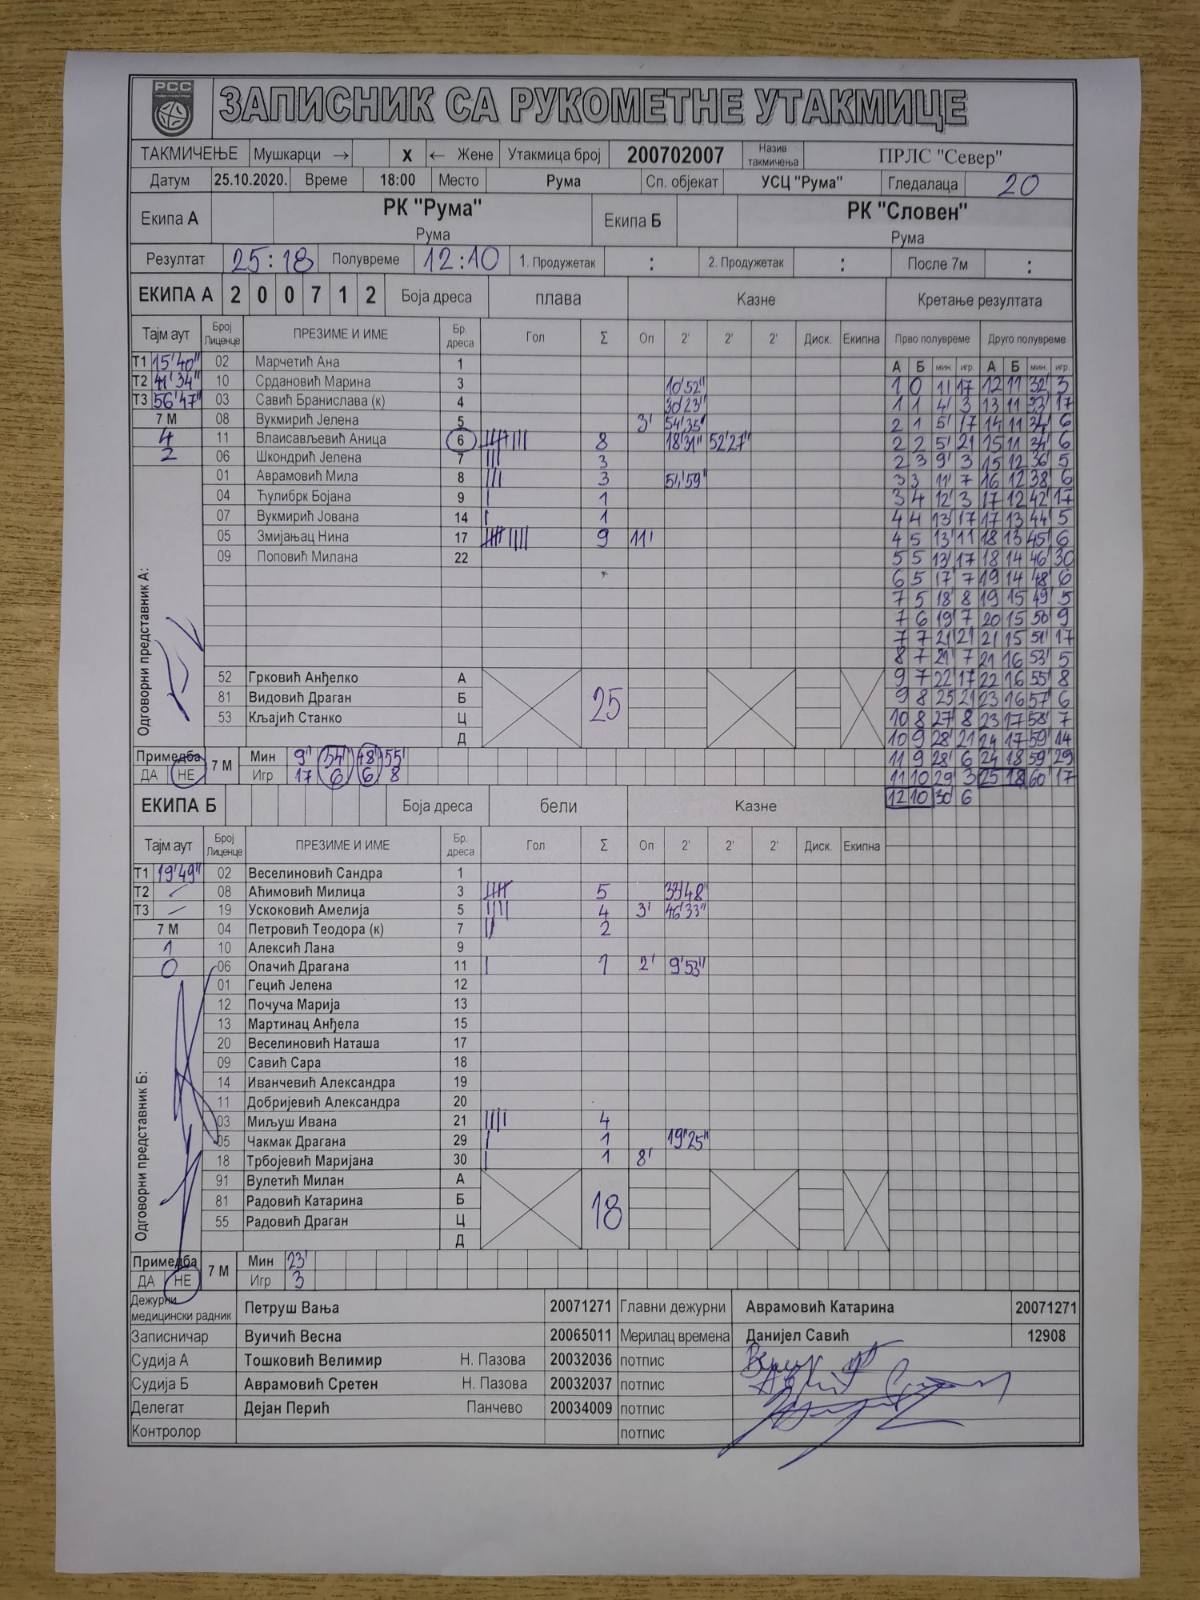 РСС
ЗАПИСНИК СА РУКОМЕТНЕ УТАКМИЦЕ
ТАКМИЧЕЊЕ Мушкарци → X ← Жене Утакмица број 200702007 Назив такмичења ПРЛС "Север"
Датум 25.10.2020. Време 18:00 Место Рума Сп. објекат УСЦ "Рума" Гледалаца 20
Екипа А РК "Рума" Рума Екипа Б РК "Словен" Рума
Резултат 25:18 Полувреме 12:10 1. Продужетак : 2. Продужетак : После 7м :
ЕКИПА А 2 0 0 7 1 2 Боја дреса плава Казне Кретање резултата
Тајм аут Број Лиценце ПРЕЗИМЕ И ИМЕ Бр. дреса Гол Σ Оп 2' 2' 2' Диск. Екипна Прво полувреме Друго полувреме
А Б мин. игр. А Б мин. игр.
Т1 15'40" 02 Марчетић Ана 1
Т2 41'34" 10 Срдановић Марина 3 10'52"
Т3 56'47" 03 Савић Бранислава (к) 4 30'23"
7 М 08 Вукмирић Јелена 5 3' 54'35"
4 11 Влаисављевић Аница 6 8 18'31" 52'27"
2 06 Шкондрић Јелена 7 3
01 Аврамовић Мила 8 3 54'59"
04 Ћулибрк Бојана 9 1
07 Вукмирић Јована 14 1
05 Змијањац Нина 17 9 11'
09 Поповић Милана 22
1 0 1' 17 12 11 32' 3
1 1 4' 3 13 11 33' 17
2 1 5' 17 14 11 34' 6
2 2 5' 21 15 11 34' 6
2 3 9' 3 15 12 36' 5
3 3 11' 7 16 12 38' 6
3 4 12' 3 17 12 42' 17
4 4 13' 17 17 13 44' 5
4 5 13' 11 18 13 45' 6
5 5 13' 17 18 14 46' 30
6 5 17' 7 19 14 48' 6
7 5 18' 8 19 15 49' 5
7 6 19' 7 20 15 50' 9
7 7 21' 21 21 15 51' 17
8 7 21' 7 21 16 53' 5
9 7 22' 17 22 16 55' 8
9 8 25' 21 23 16 57' 6
10 8 27' 8 23 17 58' 7
10 9 28' 21 24 17 59' 14
11 9 28' 6 24 18 59' 29
11 10 29' 3 25 18 60' 17
12 10 30' 6
Одговорни представник А:
52 Грковић Анђелко А
81 Видовић Драган Б 25
53 Кљајић Станко Ц
Д
Примедба ДА НЕ 7 М Мин 9' 34' 48' 55'
Игр 17 6 6 8
ЕКИПА Б Боја дреса бели Казне
Тајм аут Број Лиценце ПРЕЗИМЕ И ИМЕ Бр. дреса Гол Σ Оп 2' 2' 2' Диск. Екипна
Т1 19'49" 02 Веселиновић Сандра 1
Т2 – 08 Аћимовић Милица 3 5 33'48"
Т3 – 19 Ускоковић Амелија 5 4 3' 46'33"
7 М 04 Петровић Теодора (к) 7 2
1 10 Алексић Лана 9
0 06 Опачић Драгана 11 1 2' 9'53"
01 Гецић Јелена 12
12 Почуча Марија 13
13 Мартинац Анђела 15
20 Веселиновић Наташа 17
09 Савић Сара 18
14 Иванчевић Александра 19
11 Добријевић Александра 20
03 Миљуш Ивана 21 4
05 Чакмак Драгана 29 1 19'25"
18 Трбојевић Маријана 30 1 8'
Одговорни представник Б:
91 Вулетић Милан А
81 Радовић Катарина Б 18
55 Радовић Драган Ц
Д
Примедба ДА НЕ 7 М Мин 23'
Игр 3
Дежурни медицински радник Петруш Вања 20071271 Главни дежурни Аврамовић Катарина 20071271
Записничар Вуичић Весна 20065011 Мерилац времена Данијел Савић 12908
Судија А Тошковић Велимир Н. Пазова 20032036 потпис
Судија Б Аврамовић Сретен Н. Пазова 20032037 потпис
Делегат Дејан Перић Панчево 20034009 потпис
Контролор потпис